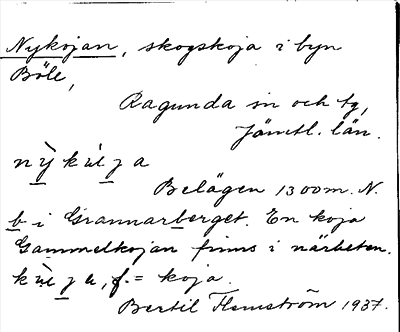 Nykojan, skogskoja i byn
Böle,
Ragunda sn och tg,
Jämtl. län.
nỳkùl̀ja
Belägen 1300 m. N.
b i Grannarberget. En koja
Gammelkojan finns i närheten.
f. = koja.
Bertil Flemström 1937.